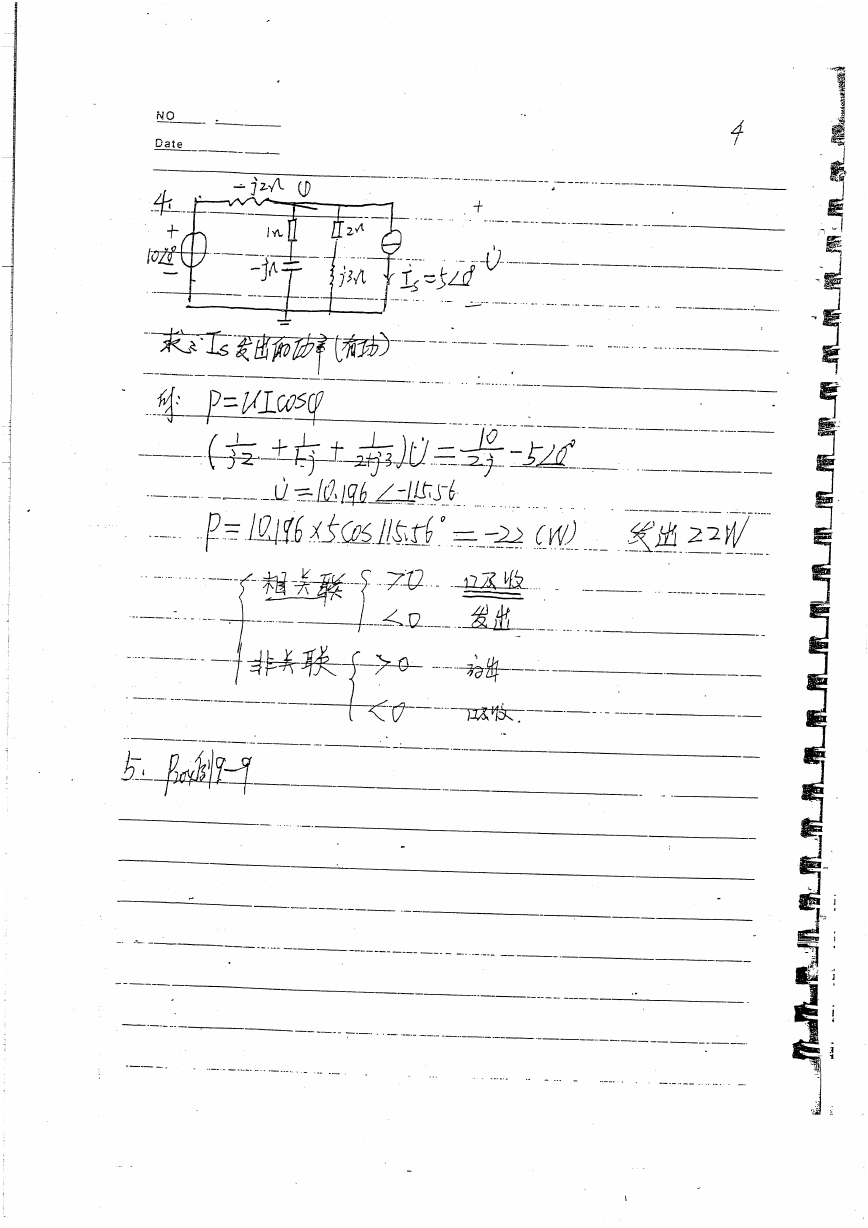 NO
Date
4
4.
-j2Ω ①
1Ω 2Ω
+ +
10∠0°
- -
-jΩ j3Ω İs=5∠0° U̇
求: Is发出的功率(有功)
解: P=UIcosφ
(1/j2 + 1/1-j + 1/2+j3)U̇ = 10/2j - 5∠0°
U̇=10.196∠-115.56
P=10.196×5cos115.56°=-22(W) 发出22W
相关联 >0 吸收
<0 发出
非关联 >0 发出
<0 吸收.
5. 例9-9